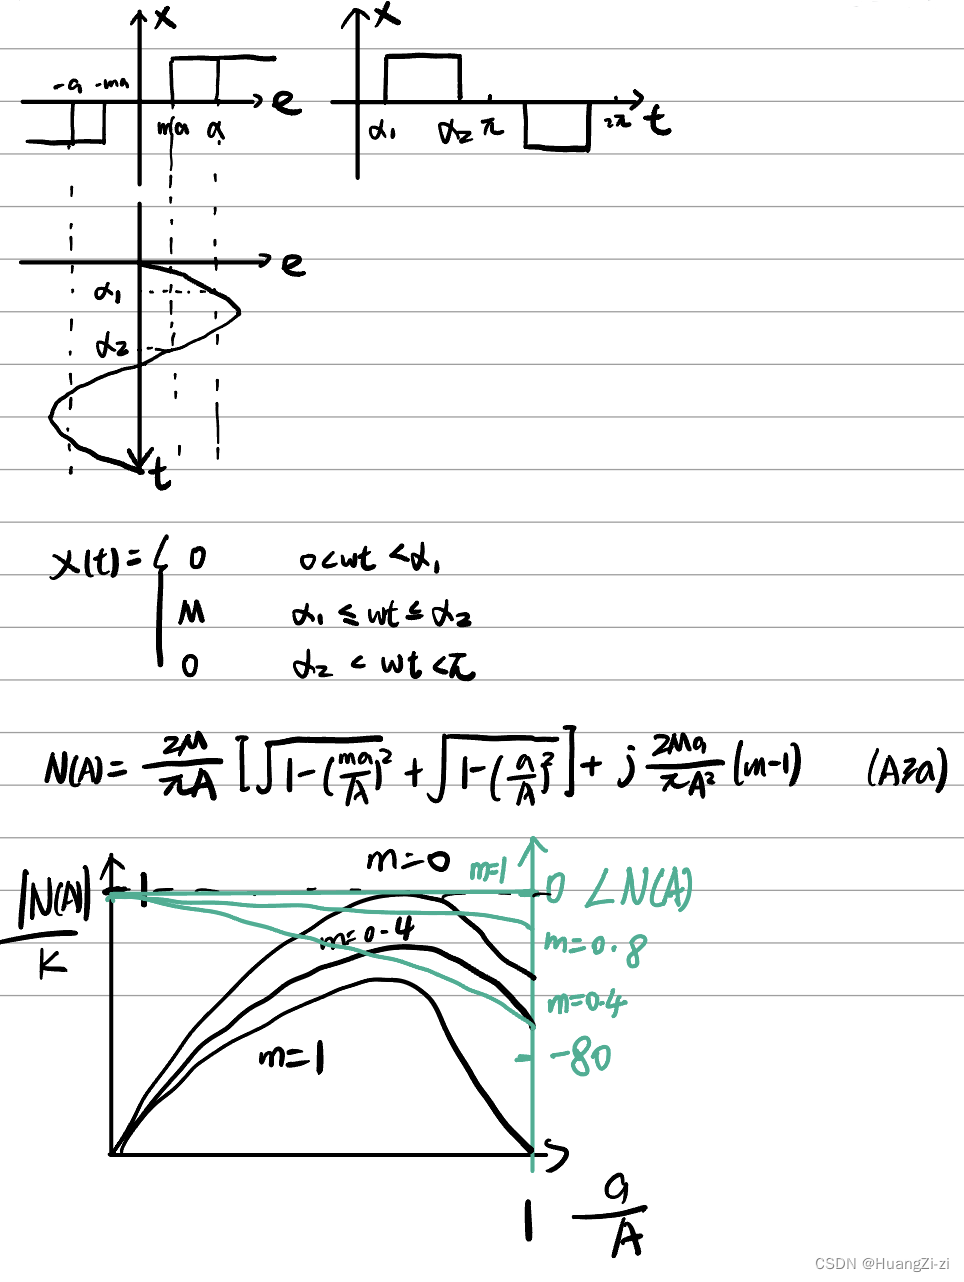 x x
-a -ma e ma a
α₁ α₂ π 2π t
e
α₁
α₂
t
x(t) = { 0 0<wt<α₁
M α₁ ≤ wt ≤ α₂
0 α₂ < wt < π
N(A) = 2M/πA [√(1-(ma/A)²) + √(1-(a/A)²)] + j 2Ma/πA² (m-1) (A≥a)
|N(A)|/K 1 m=0 m=1 0 ∠N(A)
m=0.4 m=0.8
m=0.4
m=1 -80
1 a/A
CSDN @HuangZi-zi